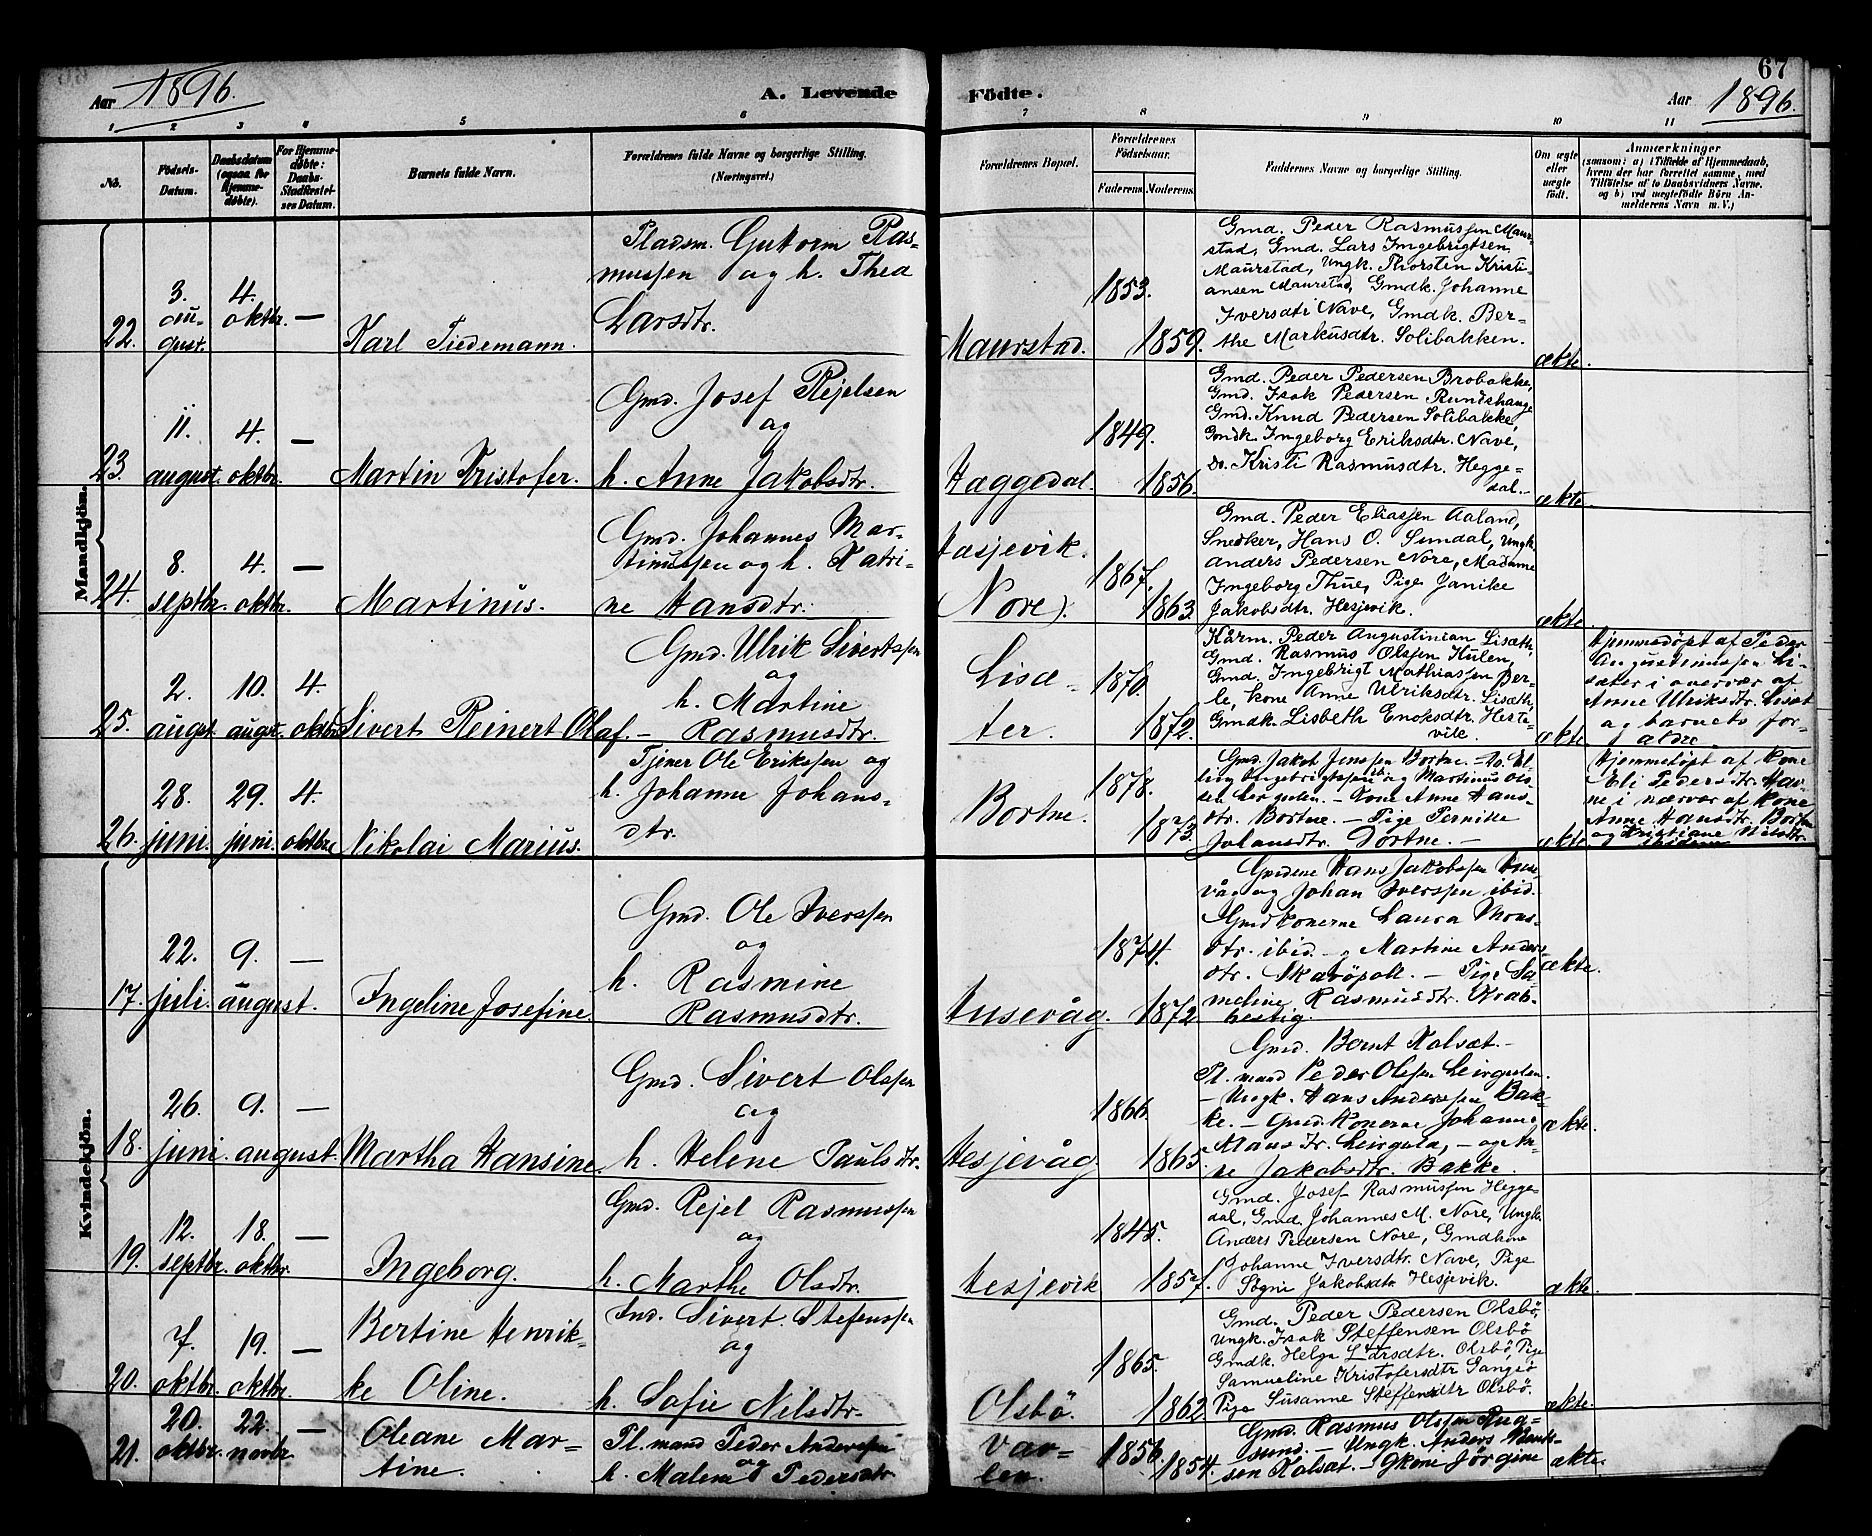 67
Aar 1896.
A. Levende Födte.
Aar 1896.
1 2 3 4 5 6 7 8 9 10 11
No.
Födsels-
Datum.
Daabsdatum
(ogsaa for
Hjemme-
döbte).
For Hjemme-
døbte:
Daabs-
Stadfæstel-
ses Datum.
Barnets fulde Navn.
Forældrenes fulde Navne og borgerlige Stilling.
(Næringsvei.)
Forældrenes Bopæl.
Forældrenes
Födselsaar.
Faderens. Moderens.
Faddernes Navne og borgerlige Stilling.
Om ægte
eller
uægte
født.
Anmærkninger
(saasom: a) i Tilfælde af Hjemmedaab,
hvem der har forrettet samme, med
Tilföielse af to Daabsvidners Navne,
og b) ved uægtefödte Börn An-
melderens Navn m. V.)
Mandkjön.
22.
3.
au-
gust.
4.
oktbr.
—
Karl Tiedemann.
Pladsm. Guttorm Ras-
mussen og h. Thea
Larsdtr.
Maurstad.
1853.
1859.
Gmd. Peder Rasmussen Maur-
stad, Gmd. Lars Ingebrigtsen
Maurstad, Ungk. Thorsten Kristi-
ansen Maurstad, Gmdk. Johanne
Iversdtr Nave, Gmdk. Ber-
the Markusdtr. Solibakken.
ækte.
23.
11.
august.
4.
oktbr.
—
Martin Kristofer.
Gmd. Josef Rejelsen
og
h. Anne Jakobsdtr.
Haggedal.
1849.
1856.
Gmd. Peder Pedersen Brobakke,
Gmd. Isak Pedersen Rundehauge
Gmd. Knud Pedersen Solibakke,
Gmdk. Ingeborg Eriksdtr. Nave,
Do. Kristi Rasmusdtr. Hegge-
dal.
ækte.
24.
8.
septbr.
4.
oktbr.
—
Martinus.
Gmd. Johannes Mar-
tinussen og h. Katri-
ne Hansdtr.
Hasjevik.
(Nore).
1867.
1863.
Gmd. Peder Eliassen Aaland,
Snedker, Hans O. Sundal, Ungk.
Anders Pedersen Nore, Madame
Ingeborg Thue, Pige Janike
Jakobsdtr. Hesjevik.
ækte.
25.
2.
augst.
10.
augst.
4.
oktbr.
Sivert Reinert Olaf.
Gmd. Ulrik Sivertssen
og
h. Martine
— Rasmusdtr.
Lisæ-
ter.
1870.
1872.
Kårm. Peder Augustinian Lisæth,
Gmd. Rasmus Olssen Hulen,
Gmd. Ingebrigt Mathiassen Ber-
le, kone Anne Ulriksdtr. Lisæth,
Gmdk. Lisbeth Enoksdtr. Heste-
vik.
ækte.
Hjemmedøpt af Peder
Augustinussen Li-
sæter i overvær af
Anne Ulriksdtr. Lisæt
og barnets for-
ældre.
26.
28.
juni.
29.
juni.
4.
oktbr
Nikolai Marius.
Tjener Ole Erikssen og
h. Johanne Johans-
dtr.
Bortne.
1878.
1873.
Gmd. Jakob Jenssen Bortne. — Do. El-
ling Ingebrigtssen og Martinus Ols-
sen Leirgulen. — Kone Anne Hans-
dtr. Bortne. — Pige Pernike
Johansdtr. Bortne. —
ækte.
Hjemmedøpt af kone
Eli Pedersdtr. Hav-
ne i nærvær af kone
Anne Hansdtr. Bortne
og Kristiane Nilsdtr.
Kvindekjön.
17.
22.
juli.
9.
august.
—
Ingeline Josefine.
Gmd. Ole Iverssen
og
h. Rasmine
Rasmusdtr.
Husevåg.
1874.
1872.
Gmdene Hans Jakobssen Huse-
våg og Johan Iverssen ibid.
Gmdkonerne Laura Mons-
dtr. ibid. og Martine Anders-
dtr. Skaröpoll. — Pige Sa-
meline Rasmusdtr. Krab-
bestig.
ækte.
18.
26.
juni.
9.
august.
—
Martha Hansine.
Gmd. Sivert Olssen
og
h. Helene Paulsdtr.
Hesjevåg.
1866.
1865.
Gmd. Bernt Kalsæt. —
Pl. mand Peder Olssen Leirgulen.
— Ungk. Hans Anderssen Bak-
ke. — Gmd. Konerne Johanne
Klausdtr. Leirgulen, — og An-
ne Jakobsdtr. Bakke.
ækte.
19.
12.
septbr.
18.
oktbr.
—
Ingeborg.
Gmd. Rejel Rasmussen
og
h. Marthe Olsdtr.
Hesjevik
1845.
1857.
Gmd. Josef Rasmussen Hegge-
dal, Gmd. Johannes M. Nore, Ungk.
Anders Pedersen Nore, Gmdkone
Johanne Iversdtr. Nave, Pige
Sogni Jakobsdtr Hesjevik.
ækte.
20.
7.
oktbr.
19.
oktbr.
—
Bertine Henrik-
ke Oline.
Ind. Sivert Stefenssen
og
h. Sofie Nilsdtr.
Olsbö.
1865.
1862
Gmd. Peder Pedersen Olsbö,
Ungk. Isak Steffensen Olsbö
Gmdk. Helga Larsdtr. Olsbö, Pige
Samueline Kristofersdtr Gangsö
Pige Susanne Steffensdtr Olsbö.
ækte.
21.
20.
oktbr.
22.
novbr.
—
Oleane Mar-
tine.
Pl. mand Peder Anderssen
og
h. Malene Pedersdtr.
Var-
len.
1856.
1854.
Gmd. Rasmus Olssen Rug-
sund. — Ungk. Anders Hans-
sen Kalsæt. — Gkone Jørgine
ækte.